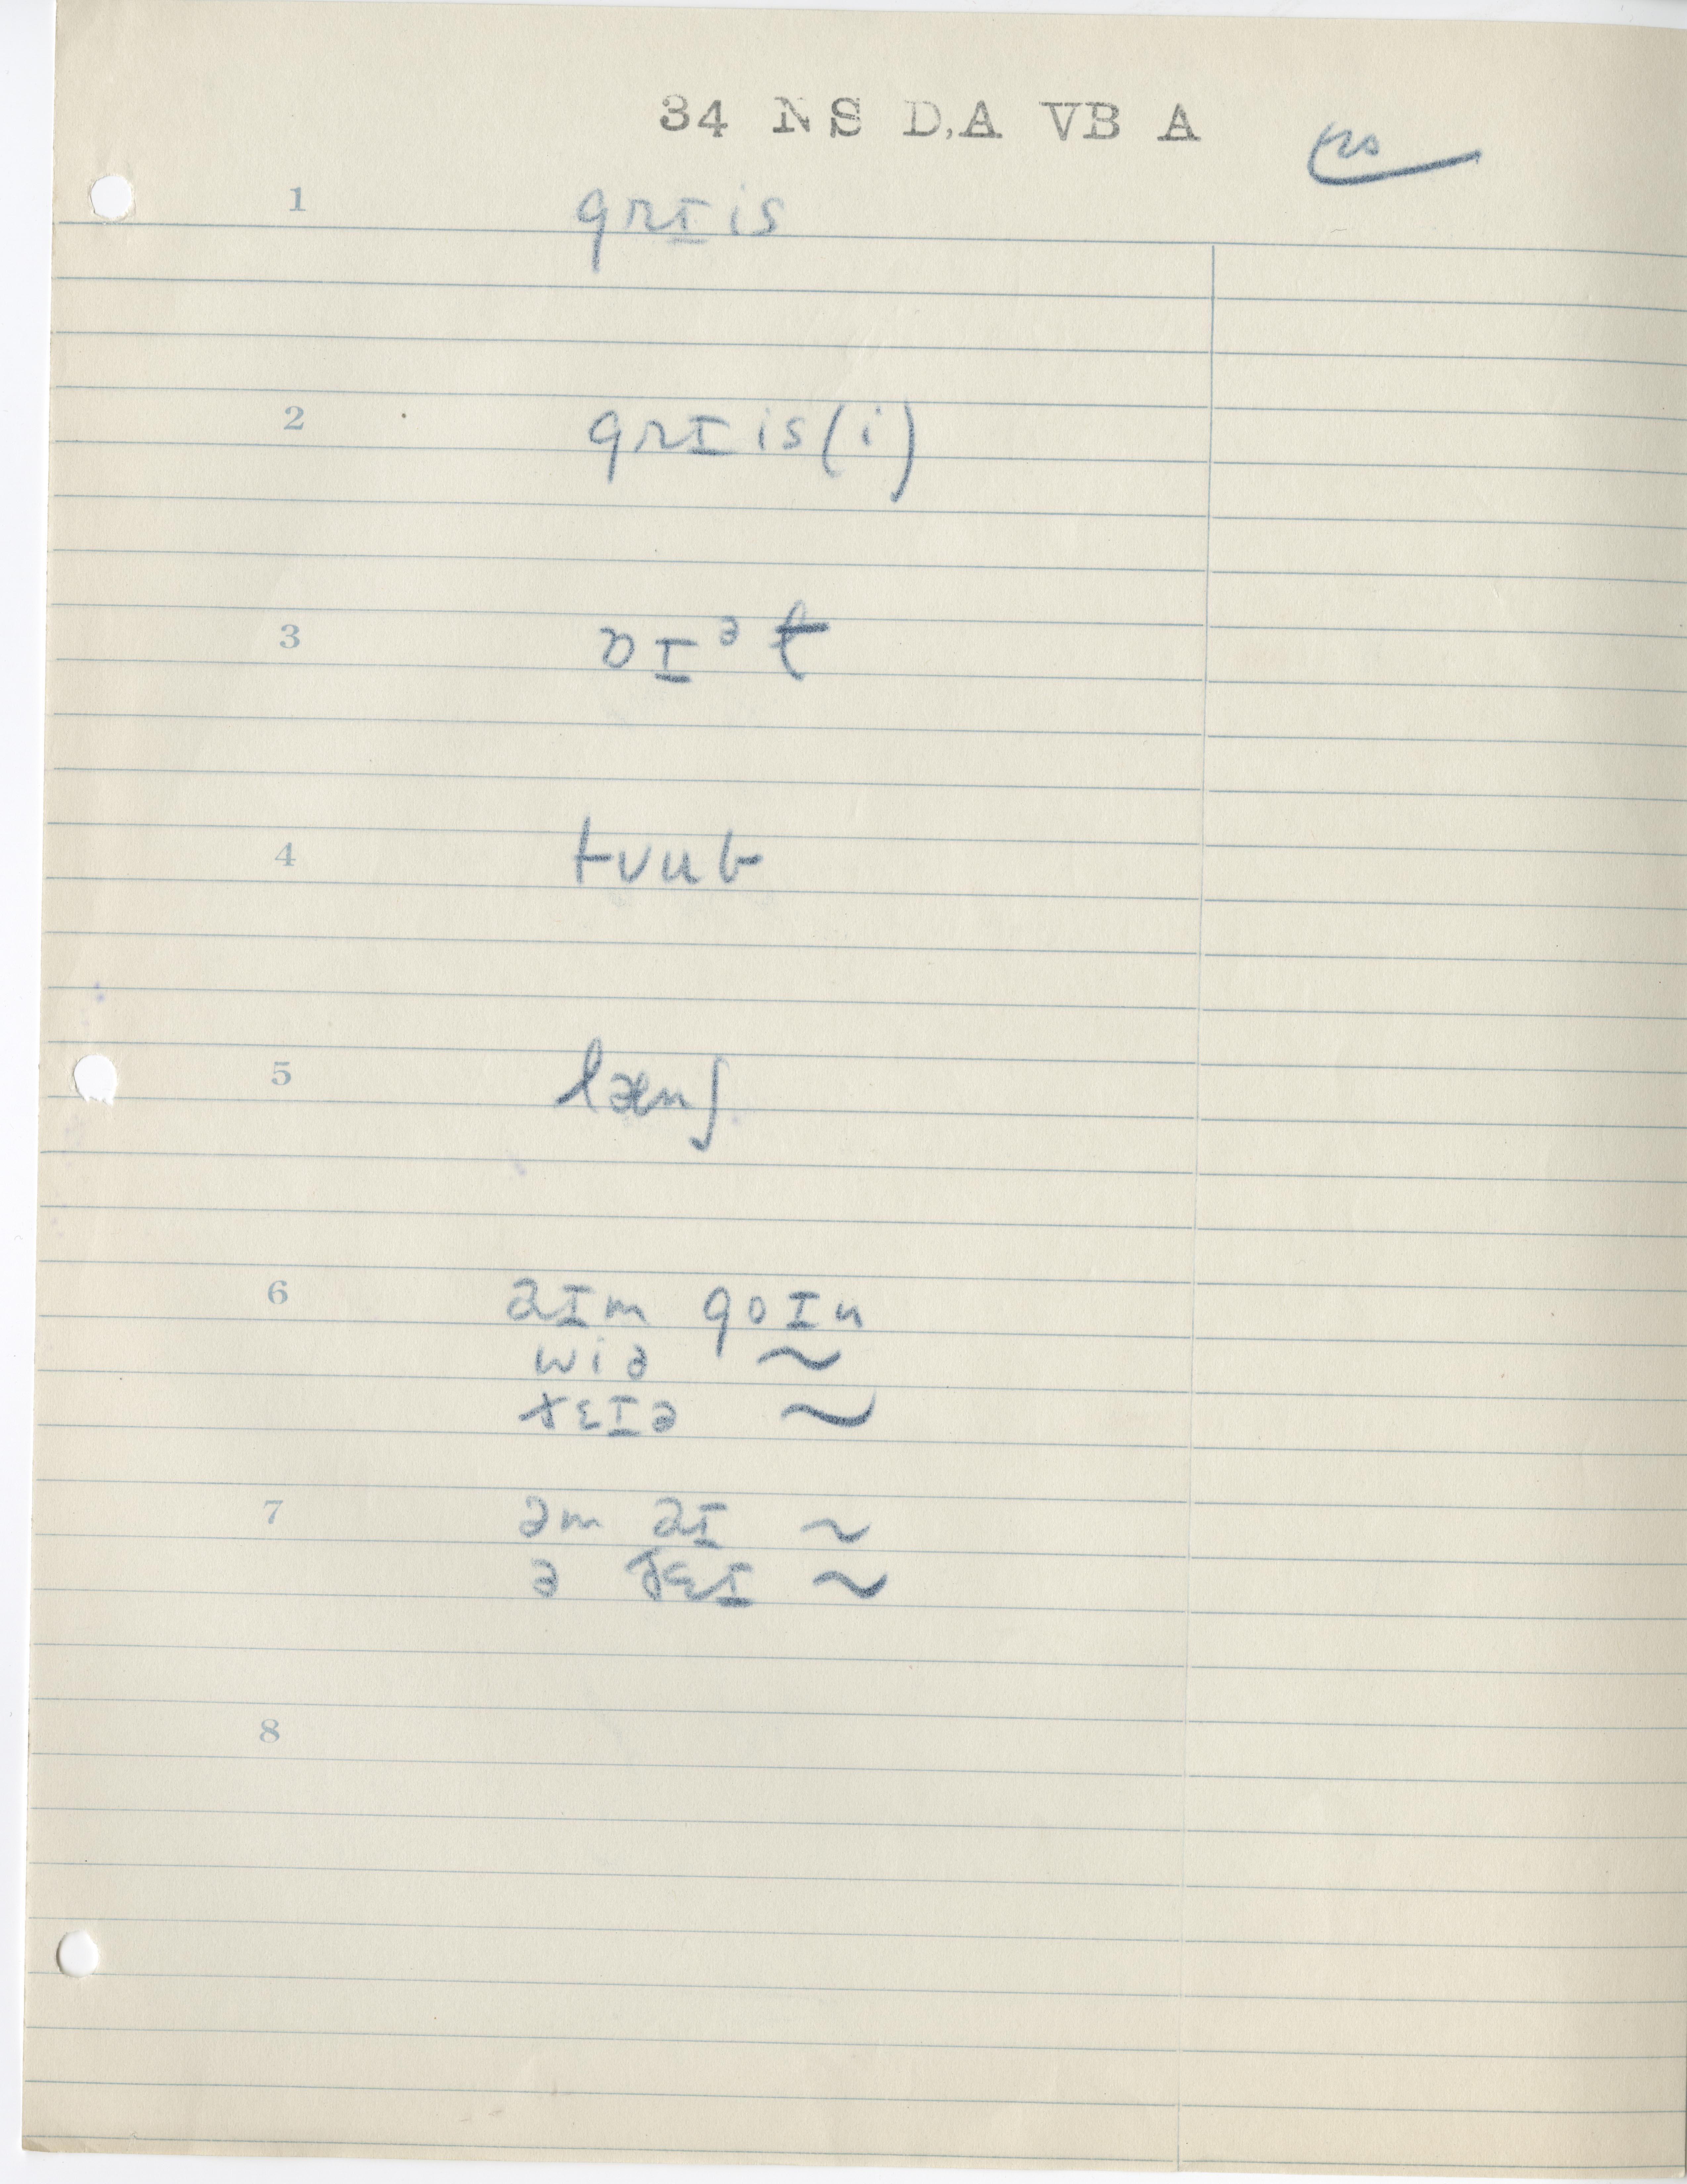 34 NS D,A VB A
1 grɪis
2 grɪis(i)
3 ɒɪᵊɫ
4 tᴜub
5 lænʃ
6 aɪm goɪn
wiə ~
ðɛɪə ~
7 əm aɪ ~
ə ðɛɪ ~
8